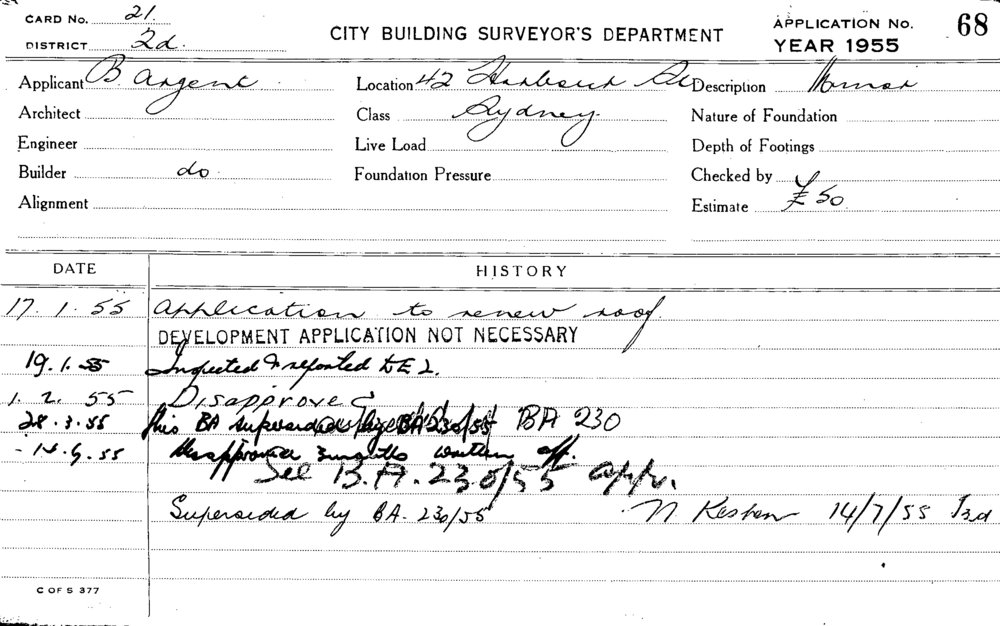 CARD No. 21.
DISTRICT 2d.
CITY BUILDING SURVEYOR'S DEPARTMENT
APPLICATION No. 68
YEAR 1955
Applicant B. Argent Location 42 Harbour St Description
Architect Class Sydney. Nature of Foundation
Engineer Live Load Depth of Footings
Builder do Foundation Pressure Checked by
Alignment Estimate £ 50
DATE HISTORY
17. 1. 55 Application to renew roof.
DEVELOPMENT APPLICATION NOT NECESSARY
19. 1. 55 Inspected & reported
1. 2. 55 Disapproved
28. 3. 55 this BA superseded by BA 230/55 BA 230
55 Disapproved 3 months written off.
See B.A. 230/55 appr.
Superseded by BA. 230/55 14/7/55
C OF S 377